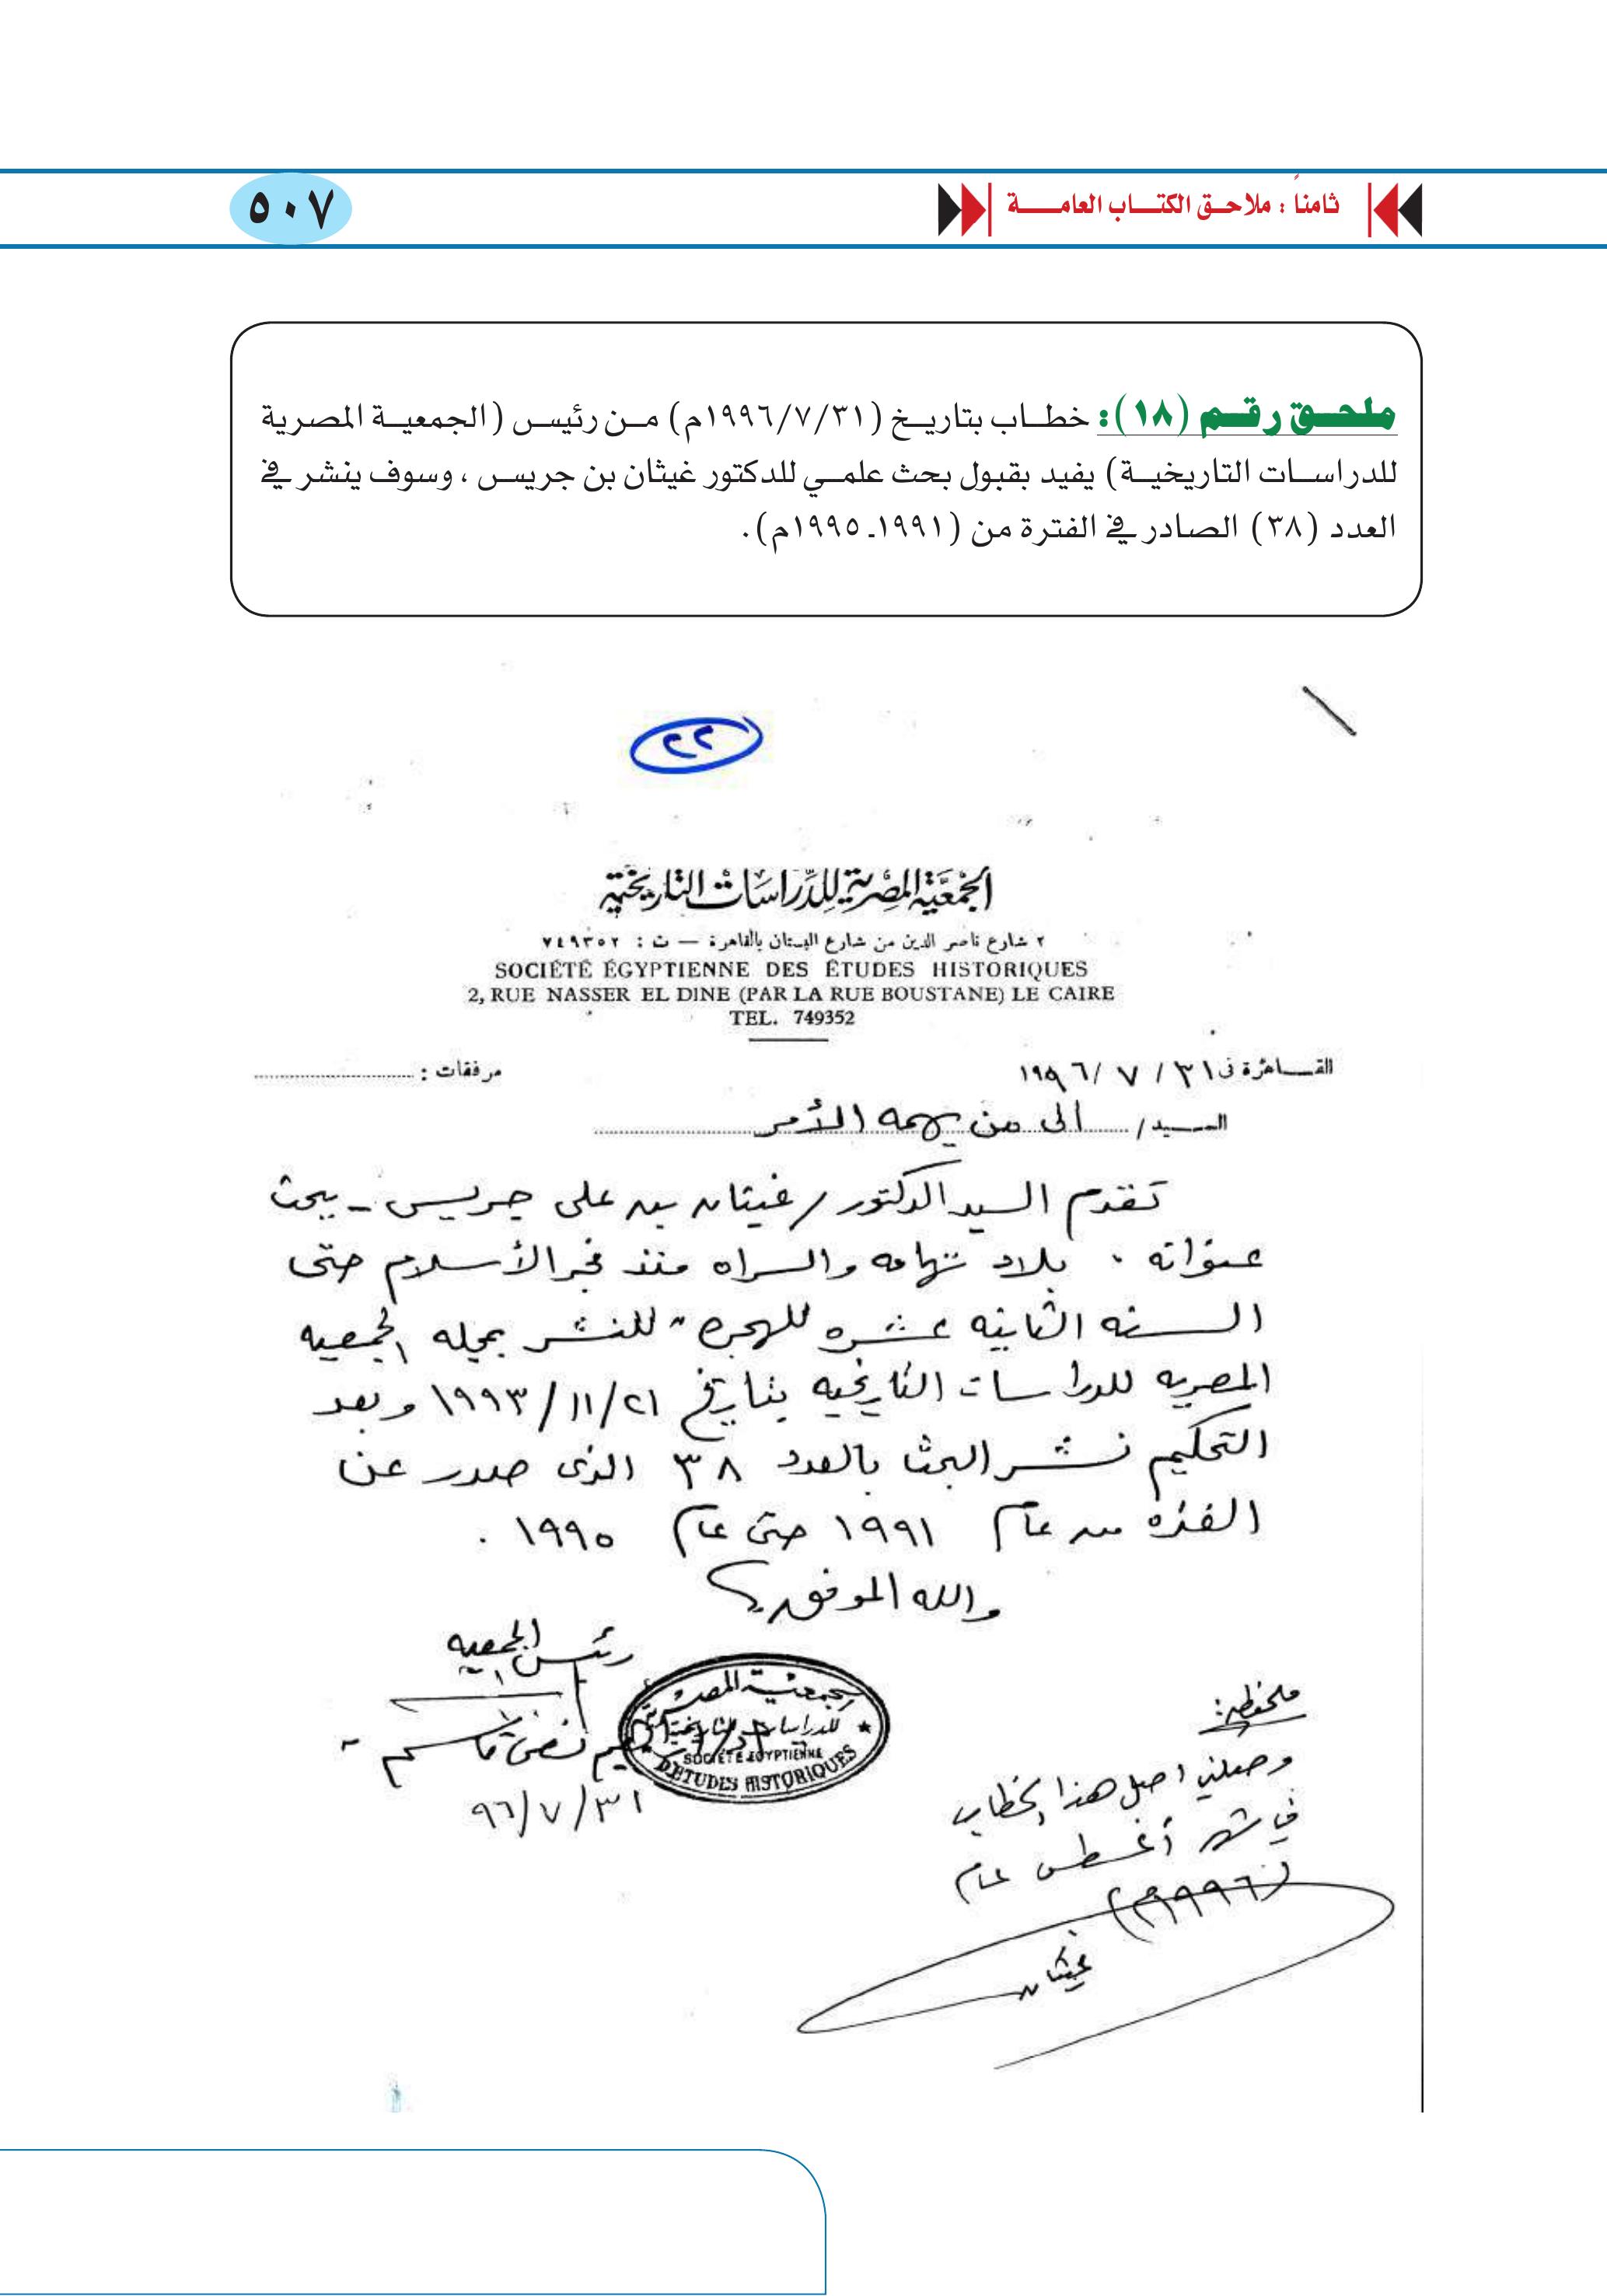 ثامناً : ملاحق الكتاب العامة
٥٠٧
ملحق رقم (١٨): خطاب بتاريخ (١٩٩٦/٧/٣١م) من رئيس (الجمعية المصرية
للدراسات التاريخية) يفيد بقبول بحث علمي للدكتور غيثان بن جريس ، وسوف ينشر في
العدد (٣٨) الصادر في الفترة من (١٩٩١ـ ١٩٩٥م).
٢٢
الجمعية المصرية للدراسات التاريخية
٢ شارع ناصر الدين من شارع البستان بالقاهرة — ت : ٧٤٩٣٥٢
SOCIÉTÉ ÉGYPTIENNE DES ÉTUDES HISTORIQUES
2, RUE NASSER EL DINE (PAR LA RUE BOUSTANE) LE CAIRE
TEL. 749352
القاهرة في ٣١ / ٧ / ١٩٩٦
مرفقات :
السيد / الى من يهمه الأمر
تقدم السيد الدكتور / غيثان بن على جريس - ببحث
عنوانه . بلاد تهامه والسراه منذ فجر الأسلام حتى
السنه الثانيه عشره للهجره " للنشر بمجله الجمعيه
المصريه للدراسات التاريخيه بتاريخ ٢١/ ١١/ ١٩٩٣ وبعد
التحكيم نشر البحث بالعدد ٣٨ الذى صدر عن
الفتره من عام ١٩٩١ حتى عام ١٩٩٥ .
والله الموفق
رئيس الجمعيه
قاسم
٣١/ ٧/ ٩٦
الجمعية المصرية
للدراسات التاريخية
SOCIÉTÉ EGYPTIENNE
D'ETUDES HISTORIQUES
ملحظه:
وصلني اصل هذا الخطاب
في شهر أغسطس عام
(١٩٩٦م)
غيثان